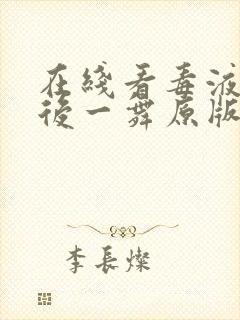 在綫看毒液
後一舞原版
李長燦